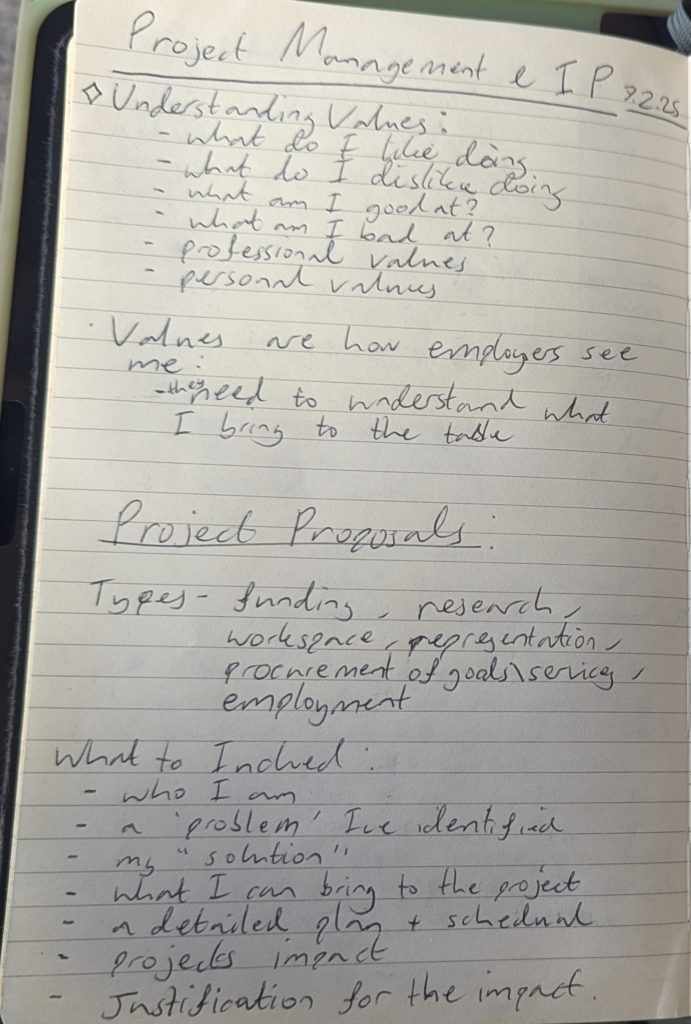 Project Management & IP 7.2.25
◇ Understanding Values:
- what do I like doing
- what do I dislike doing
- what am I good at?
- what am I bad at?
- professional values
- personal values
· Values are how employers see
me:
- they need to understand what
I bring to the table
Project Proposals:
Types - funding, research,
workspace, representation,
procurement of goals\services,
employment
What to Inclued:
- who I am
- a 'problem' I've identified
- my "solution"
- what I can bring to the project
- a detailed plan + schedual
- projects impact
- Justification for the impact.